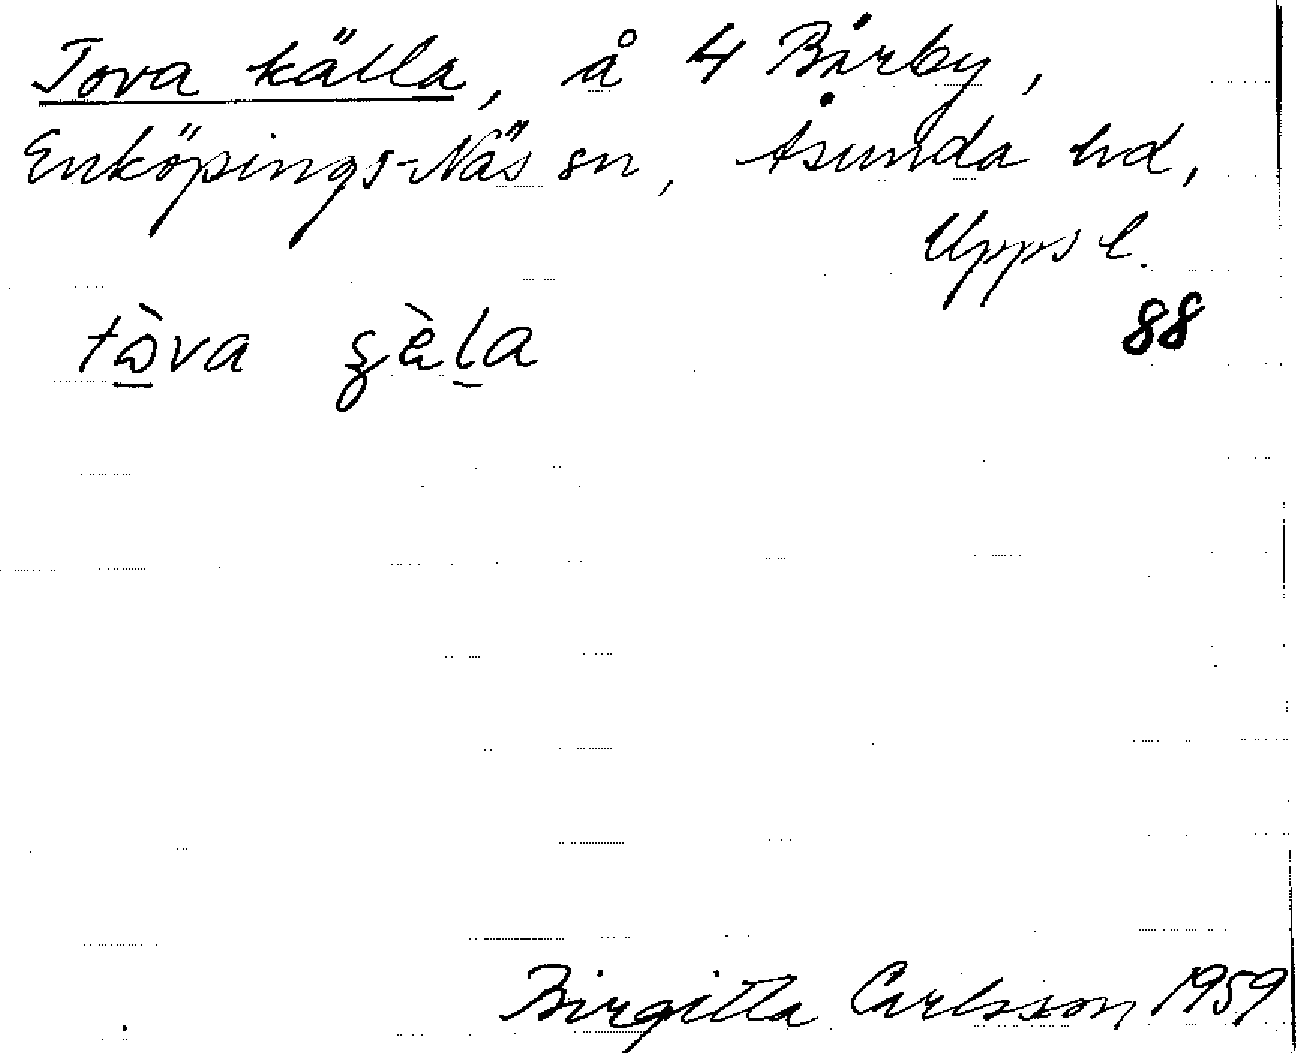 Tova källa, å 4 Bärby,
Enköpings-Näs sn, Åsunda hd,
Upps l.
88
Birgitta Carlsson 1959